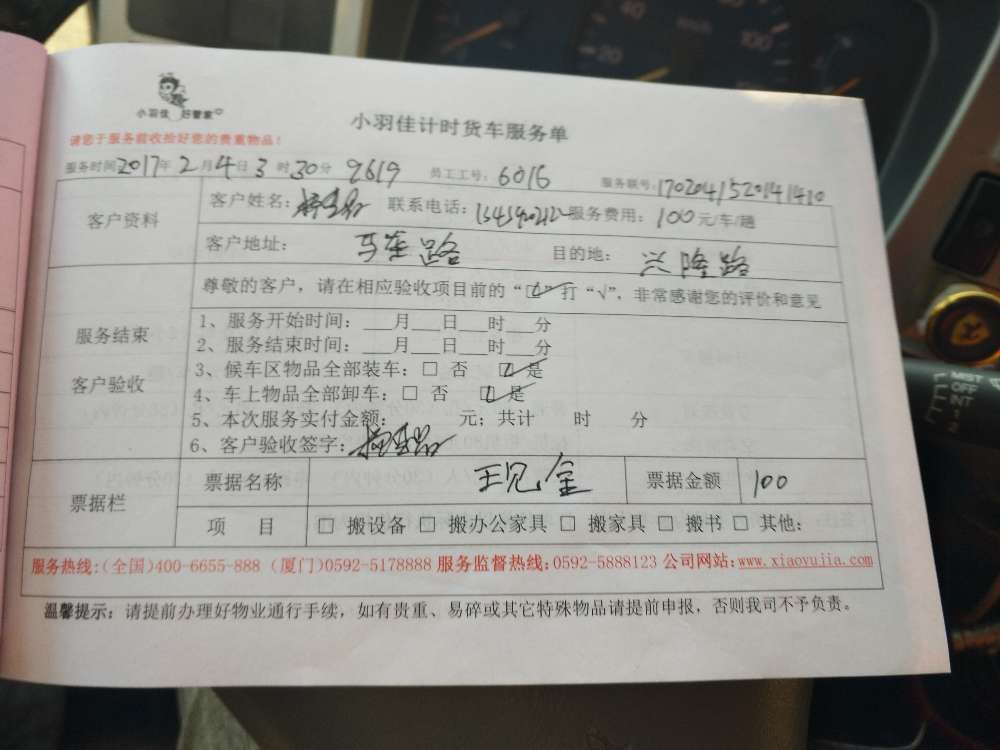 小羽佳 好管家
小羽佳计时货车服务单
请您于服务前收拾好您的贵重物品!
服务时间2017年2月4日3时30分 9619 员工工号:6016 服务联号:1702041520141410
客户资料
客户姓名: 联系电话: 服务费用:100元/车/趟
客户地址: 路 目的地: 兴隆路
尊敬的客户,请在相应验收项目前的“□”打“√”,非常感谢您的评价和意见
服务结束
客户验收
1、服务开始时间:___月___日___时___分
2、服务结束时间:___月___日___时___分
3、候车区物品全部装车:□ 否 ☑ 是
4、车上物品全部卸车:□ 否 ☑ 是
5、本次服务实付金额: 元;共计 时 分
6、客户验收签字:
票据栏
票据名称 现金 票据金额 100
项 目 □ 搬设备 □ 搬办公家具 □ 搬家具 □ 搬书 □ 其他:
服务热线:(全国)400-6655-888 (厦门)0592-5178888 服务监督热线:0592-5888123 公司网站:www.xiaoyujia.com
温馨提示:请提前办理好物业通行手续,如有贵重、易碎或其它特殊物品请提前申报,否则我司不予负责。
MIST
OFF
INT
1
2
40
20
km/h
100
120